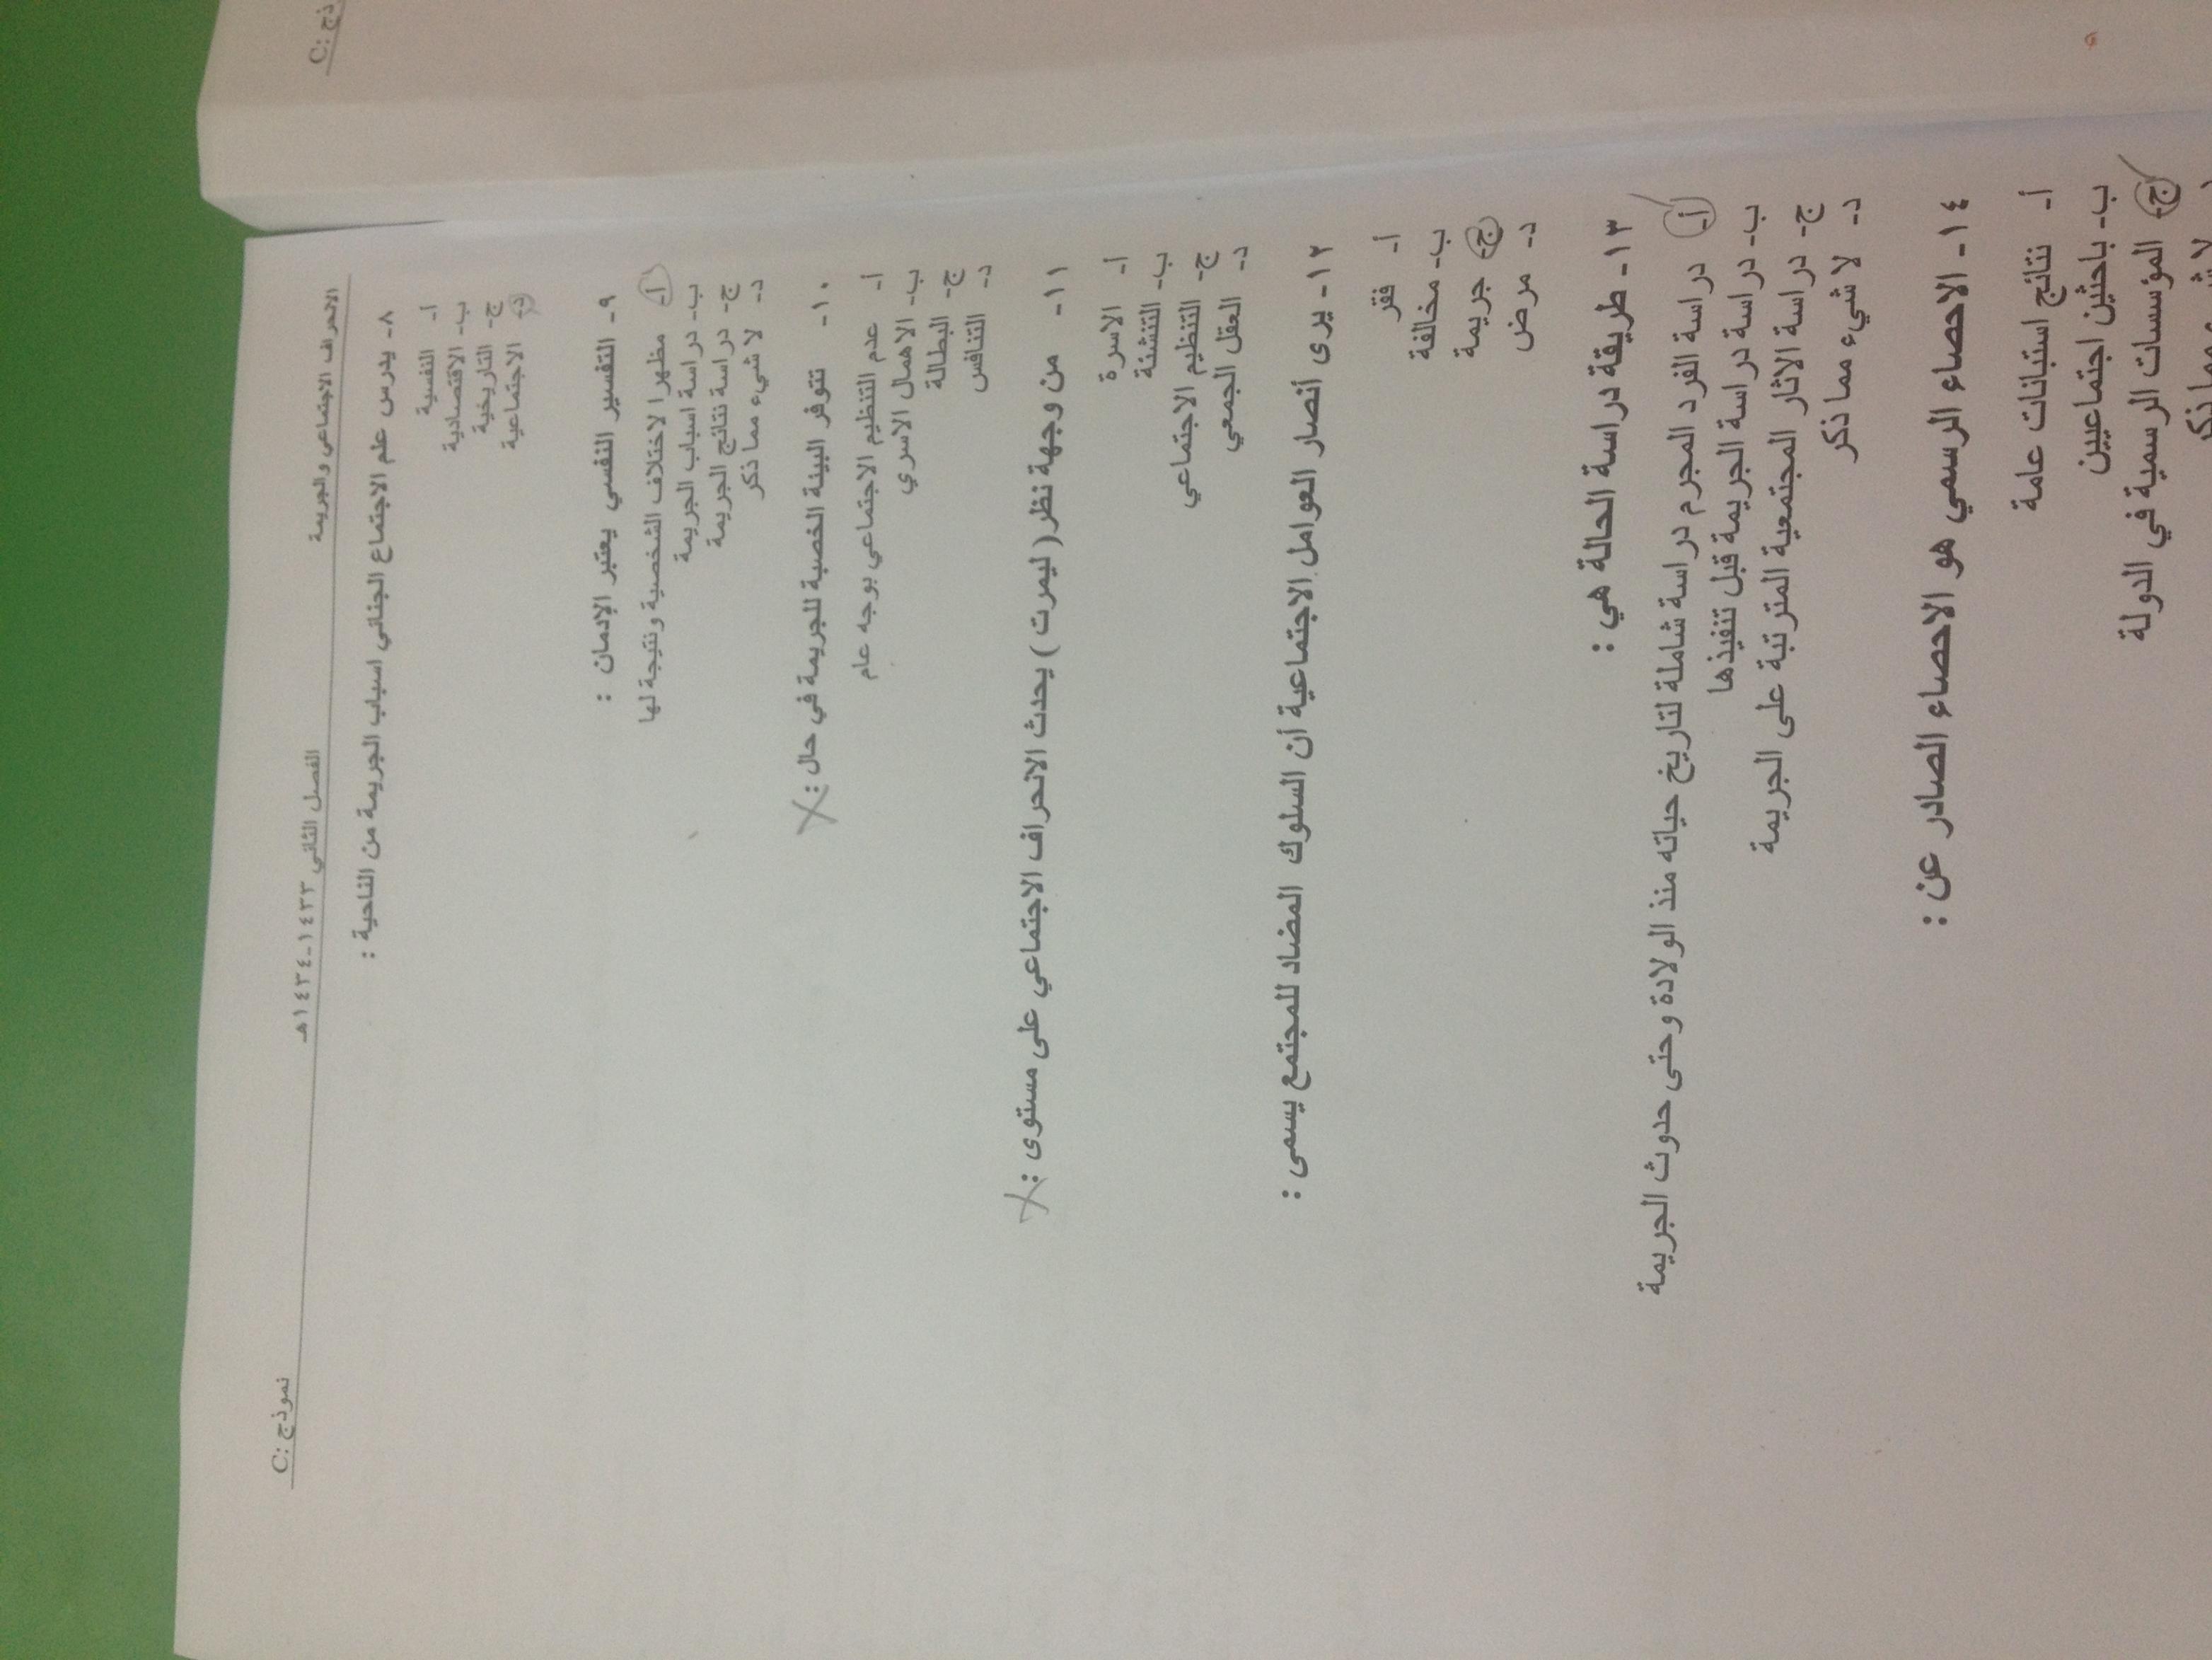 الانحراف الاجتماعي والجريمة الفصل الثاني ١٤٣٣-١٤٣٤هـ نموذج :C
٨- يدرس علم الاجتماع الجنائي اسباب الجريمة من الناحية :
أ- النفسية
ب- الاقتصادية
ج- التاريخية
د- الاجتماعية
٩- التفسير النفسي يعتبر الإدمان :
أ- مظهرا لاختلاف الشخصية ونتيجة لها
ب- دراسة اسباب الجريمة
ج- دراسة نتائج الجريمة
د- لا شيء مما ذكر
١٠- تتوفر البيئة الخصبة للجريمة في حال :
أ- عدم التنظيم الاجتماعي بوجه عام
ب- الاهمال الاسري
ج- البطالة
د- التنافس
١١- من وجهة نظر( ليمرت ) يحدث الانحراف الاجتماعي على مستوى :
أ- الاسرة
ب- التنشئة
ج- التنظيم الاجتماعي
د- العقل الجمعي
١٢- يرى أنصار العوامل الاجتماعية أن السلوك المضاد للمجتمع يسمى :
أ- فقر
ب- مخالفة
ج- جريمة
د- مرض
١٣- طريقة دراسة الحالة هي :
أ- دراسة الفرد المجرم دراسة شاملة لتاريخ حياته منذ الولادة وحتى حدوث الجريمة
ب- دراسة دراسة الجريمة قبل تنفيذها
ج- دراسة الاثار المجتمعية المترتبة على الجريمة
د- لا شيء مما ذكر
١٤- الاحصاء الرسمي هو الاحصاء الصادر عن :
أ- نتائج استبانات عامة
ب- باحثين اجتماعيين
ج- المؤسسات الرسمية في الدولة
د- لا شيء مما ذكر
ذج :C